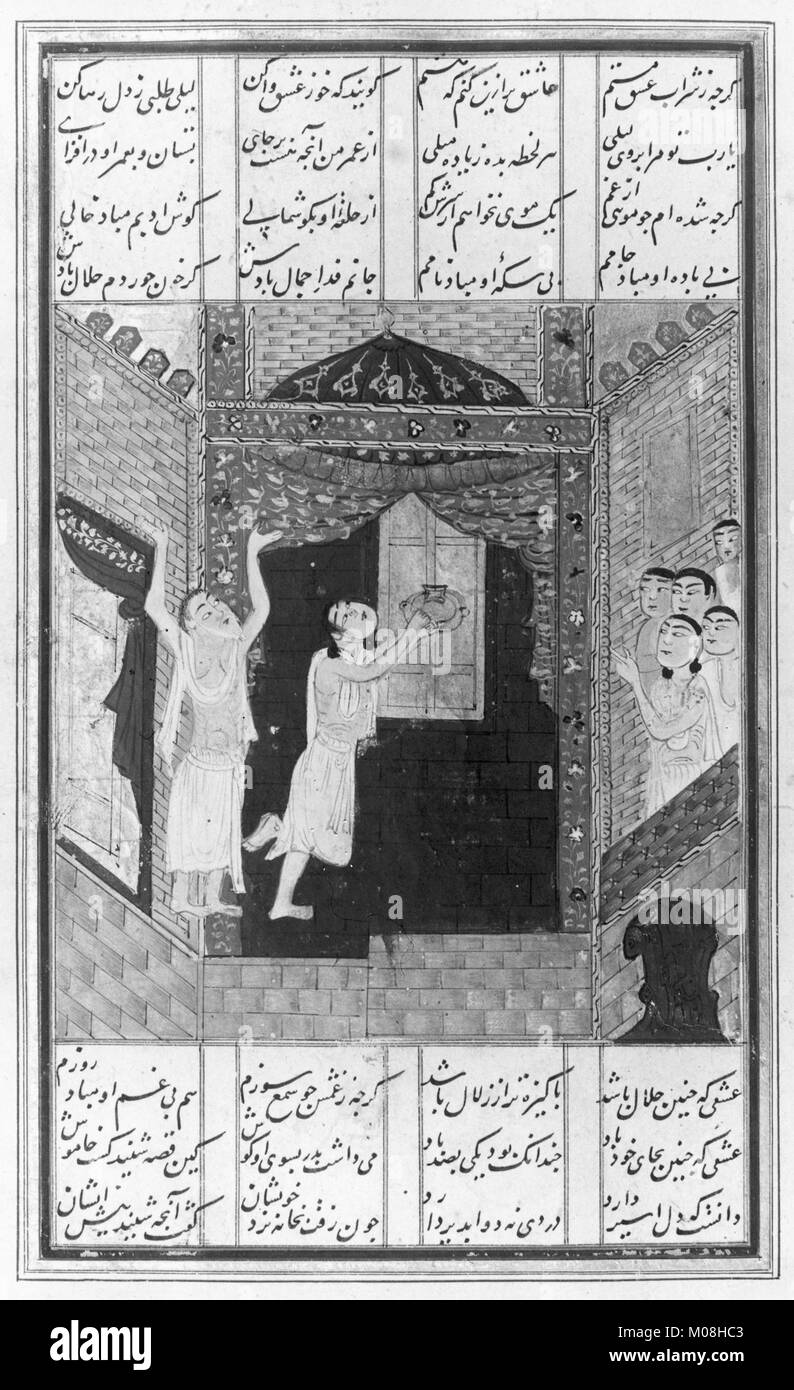 گرچه ز شراب عشق مستم عاشق تر ازین کنم که هستم گویند که خو ز عشق واکن لیلی طلبی ز دل رها کن
یارب تو مرا بروی لیلی هر لحظه بده زیاده میلی از عمر من آنچه هست بر جای بستان و بعمر او در افزای
گرچه شده ام چو موی از غم یک موی نخواهم از سرش کم از حلقه او بگوشمالی گوش ادبم مباد خالی
بی باده او مباد جامم بی سکه او مباد نامم جانم فدا جمال بادش گر خون خوردم حلال بادش
عشقی که چنین حلال باشد پاکیزه تر از زلال باشد گرچه ز غمش چو شمع سوزم هم بی غم او مباد روزم
عشقی که چنین بجای خود باد چندانک بود یکی بصد باد می داشت پدر بسوی او گوش کین قصه شنید گشت خاموش
دانست که دل اسیر دارد دردی نه دوا پذیر دارد چون رفت بخانه نزد خویشان گفت آنچه شنید پیش ایشان
alamy
Image ID: M08HC3
www.alamy.com